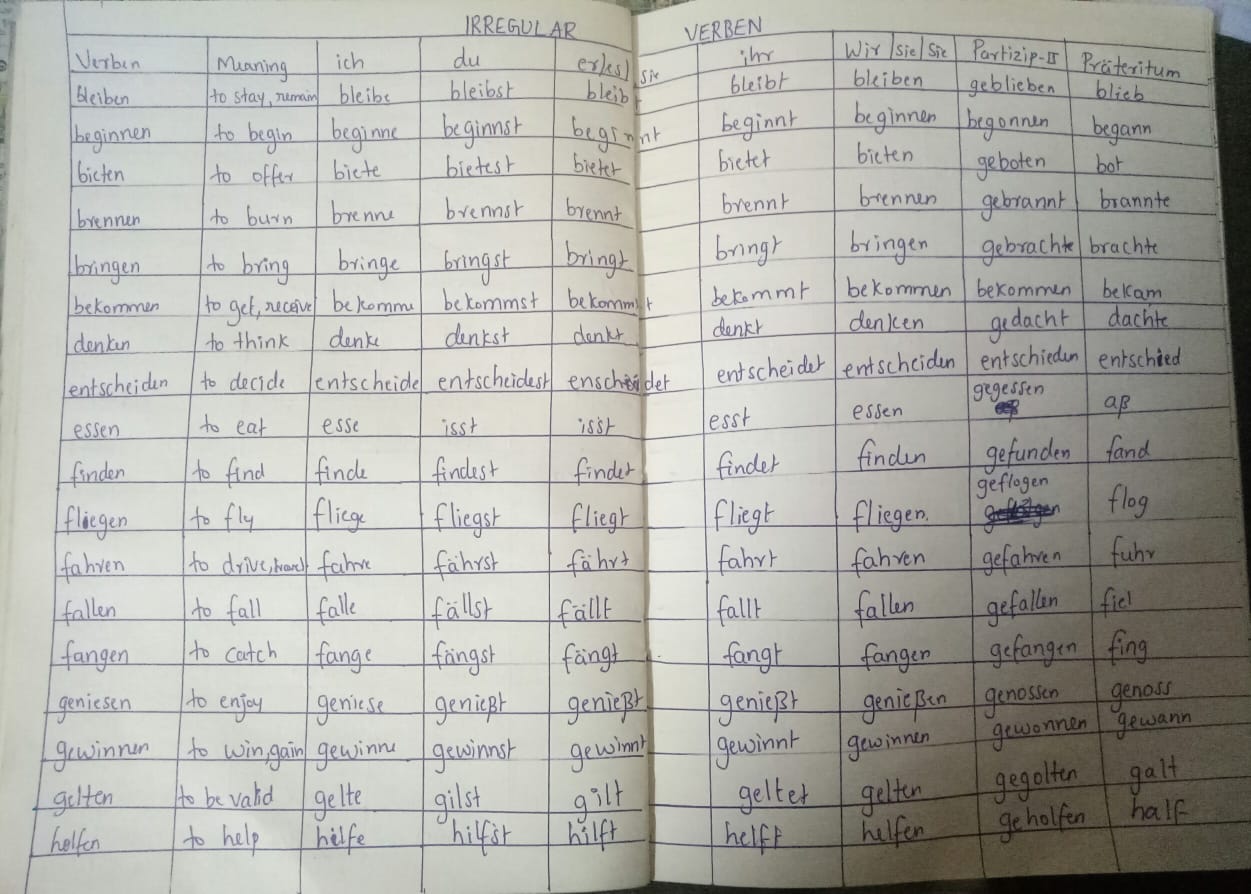 IRREGULAR VERBEN
Verben Meaning ich du er/es/sie ihr Wir/Sie/Sie Partizip-II Präteritum
bleiben to stay, remain bleibe bleibst bleibt bleibt bleiben geblieben blieb
beginnen to begin beginne beginnst beginnt beginnt beginnen begonnen begann
bieten to offer biete bietest bietet bietet bieten geboten bot
brennen to burn brenne brennst brennt brennt brennen gebrannt brannte
bringen to bring bringe bringst bringt bringt bringen gebrachte brachte
bekommen to get, receive bekomme bekommst bekommt bekommt bekommen bekommen bekam
denken to think denke denkst denkt denkt denken gedacht dachte
entscheiden to decide entscheide entscheidest enscheidet entscheidet entscheiden entschieden entschied
essen to eat esse isst isst esst essen gegessen aß
finden to find finde findest findet findet finden gefunden fand
fliegen to fly fliege fliegst fliegt fliegt fliegen. geflogen flog
fahren to drive, travel fahre fährst fährt fahrt fahren gefahren fuhr
fallen to fall falle fällst fällt fallt fallen gefallen fiel
fangen to catch fange fängst fängt fangt fangen gefangen fing
geniesen to enjoy geniese genießt genießt genießt genießen genossen genoss
gewinnen to win, gain gewinne gewinnst gewinnt gewinnt gewinnen gewonnen gewann
gelten to be valid gelte gilst gilt geltet gelten gegolten galt
helfen to help helfe hilfst hilft helft helfen geholfen half